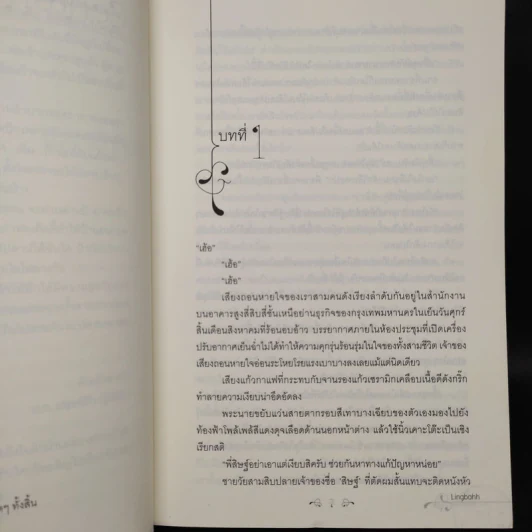 บทที่ 1
"เฮ้อ"
"เฮ้อ"
"เฮ้อ"
เสียงถอนหายใจของเราสามคนดังเรียงลำดับกันอยู่ในสำนักงาน
บนอาคารสูงสี่สิบสี่ชั้นเหนือย่านธุรกิจของกรุงเทพมหานครในเย็นวันศุกร์
สิ้นเดือนสิงหาคมที่ร้อนอบอ้าว บรรยากาศภายในห้องประชุมที่เปิดเครื่อง
ปรับอากาศเย็นฉ่ำไม่ได้ทำให้ความคุกรุ่นร้อนรุ่มในใจของทั้งสามชีวิต เจ้าของ
เสียงถอนหายใจอ่อนระโหยโรยแรงเบาบางลงเลยแม้แต่นิดเดียว
เสียงแก้วกาแฟที่กระทบกับจานรองแก้วเซรามิกเคลือบเนื้อดีดังกริ๊ก
ทำลายความเงียบน่าอึดอัดลง
พระนายขยับแว่นสายตากรอบสีเทาบางเฉียบของตัวเองมองไปยัง
ท้องฟ้าโพล้เพล้สีแดงดุจเลือดด้านนอกหน้าต่าง แล้วใช้นิ้วเคาะโต๊ะเป็นเชิง
เรียกสติ
"พี่สิษฐ์อย่าเอาแต่เงียบสิครับ ช่วยกันหาทางแก้ปัญหาหน่อย"
ชายวัยสามสิบปลายเจ้าของชื่อ 'สิษฐ์' ที่ตัดผมสั้นแทบจะติดหนังหัว
7
Lingbahh
ๆ ทั้งสิ้น